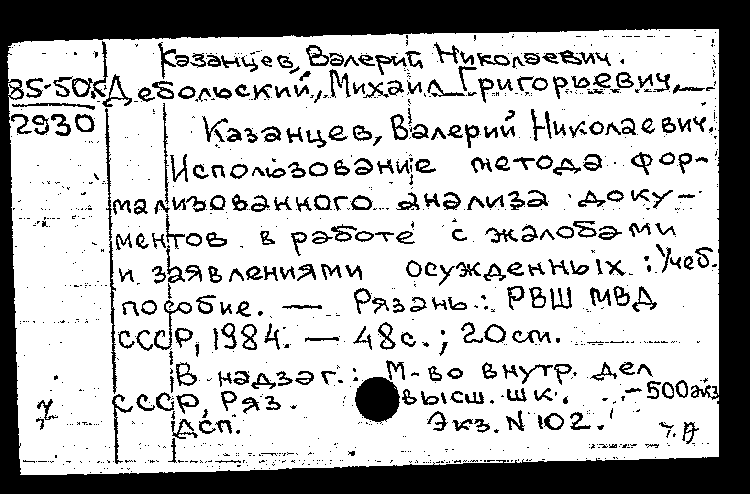 Казанцев, Валерий Николаевич.
85-50к Дебольский, Михаил Григорьевич,
2930 Казанцев, Валерий Николаевич.
Использование метода фор-
мализованного анализа доку-
ментов в работе с жалобами
и заявлениями осужденных : Учеб.
пособие. — Рязань : РВШ МВД
СССР, 1984. — 48с. ; 20 см.
В надзаг.: М-во внутр. дел
СССР, Ряз. высш. шк. — 500 экз
ДСП. Экз. N 102.